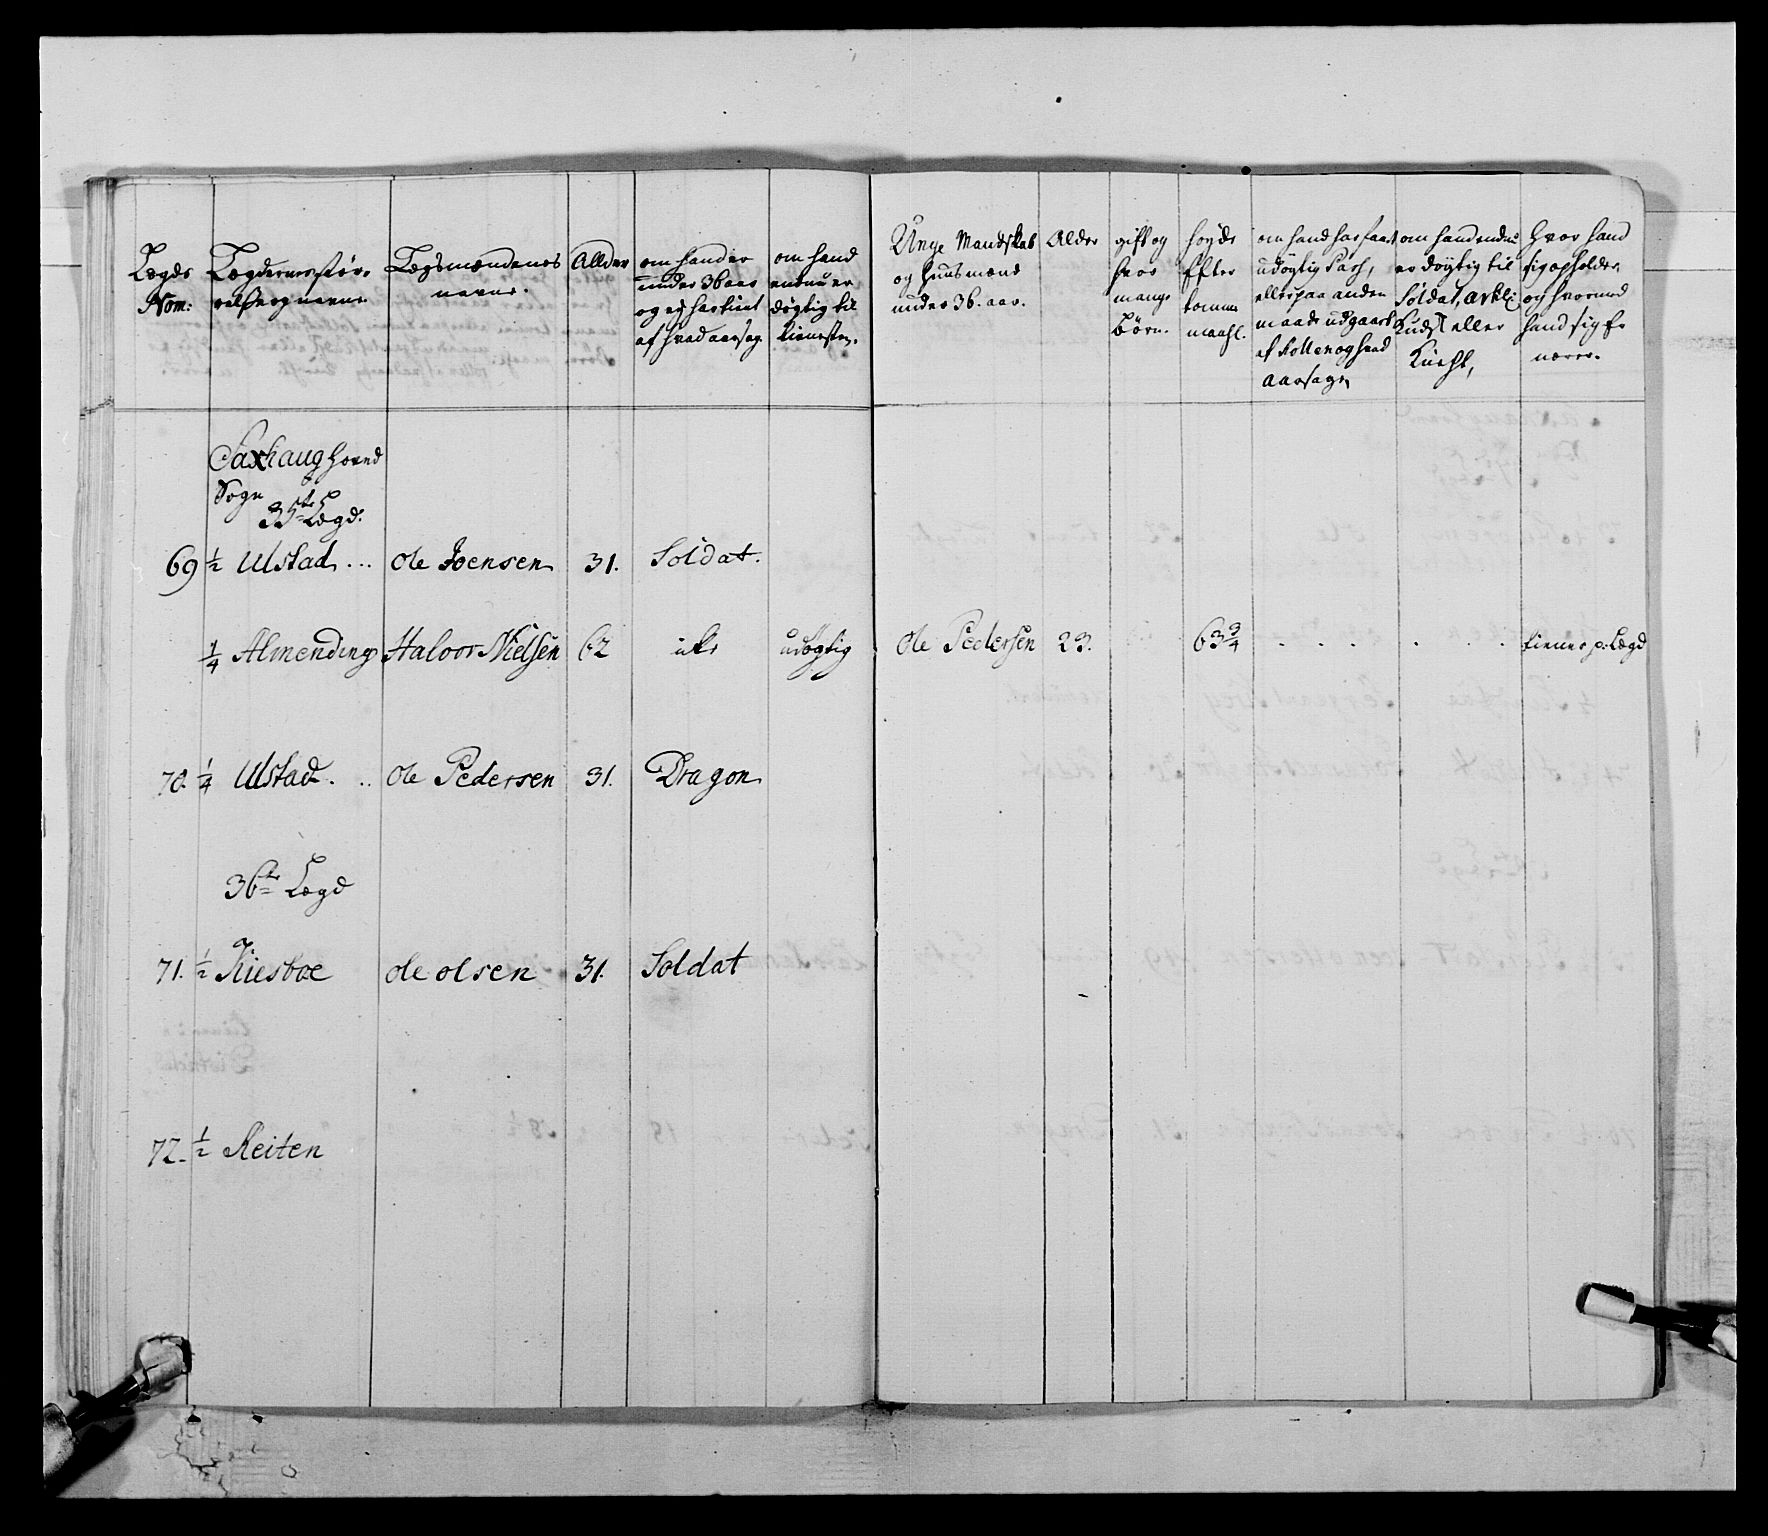 Lægds
Nom:
Lægdernes stør-
relse og navne
Lægsmændenes
navne.
Allder
om hand er
under 36 aar
og ey har tient
af hvad aarsag
om hand
endnu er
dygtig til
tienesten.
Unge Mandskab
og huusmænd
under 36. aar.
Alder
gift og
hvor
mange
börn.
höyde
Efter
tomme
maahl.
om hand har faaet
udögtig Pass,
eller paa anden
maade udgaaet
af Rollen og hvad
aarsage
om hand endnu
er döygtig til
Soldat, artkl:
Kudsk eller
Kneht,
Hvor hand
sig opholder,
og hvormed
hand sig er
nærer.
Saxhaug Hoved
Sogn
35te Lægd.
69 1/2 Ulstad ... Ole Joensen 31. Soldat.
1/4 Almending Haloor Nielsen 62 ike udögtig Ole Pedersen 23. 63 3/4 . . . . . . tiener p: Lægd
70. 1/4 Ulstad. .. Ole Pedersen 31. Dragon
36te Lægd
71. 1/2 Kiesboe Ole olsen 31. Soldat
72. 1/2 Reiten